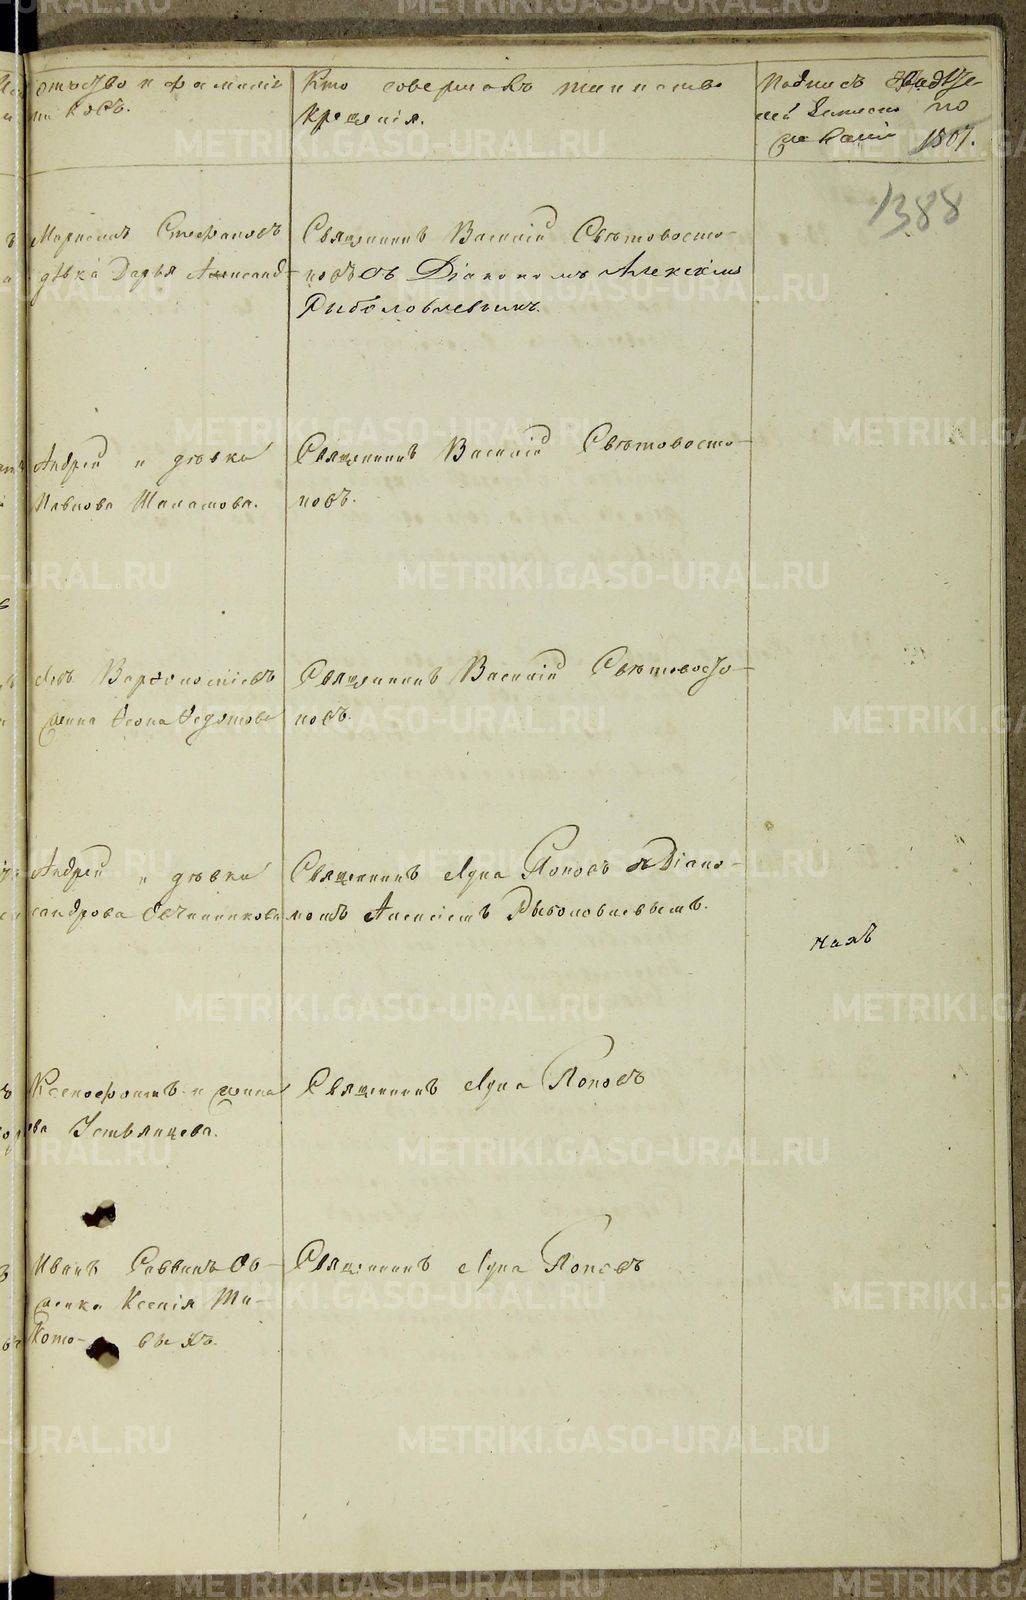 отчество и фамилія
никовъ.
Кто совершалъ таинство
крещенія.
Подпись свидѣте-
лей записи по
желанію 1801.
1388
Стефановъ
дѣвка Дарья Александ-
Священникъ Василій Свѣтовосто-
ковъ съ Діакономъ Алексіемъ
Рыболовлевымъ.
Андрей и дѣвка
Иванова Шаламова.
Священникъ Василій Свѣтовосто-
ковъ.
Варѳоломіевъ
жена
Священникъ Василій Свѣтовосто-
ковъ.
Андрей и дѣвка
сандрова Овчинникова
Священникъ Лука Поповъ съ Діако-
номъ Алексіемъ Рыболовлевымъ.
Ксенофонтъ и жена
ева Устьянцева.
Священникъ Лука Поповъ
Иванъ Саввинъ Ов-
женка Ксенія
Священникъ Лука Поповъ
METRIKI.GASO-URAL.RU